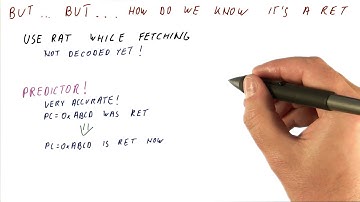 BUT... BUT... HOW DO WE KNOW IT'S A RET
USE RAT WHILE FETCHING
NOT DECODED YET!
PREDICTOR!
VERY ACCURATE!
PC=0xABCD WAS RET
⇓
PC=0xABCD IS RET NOW